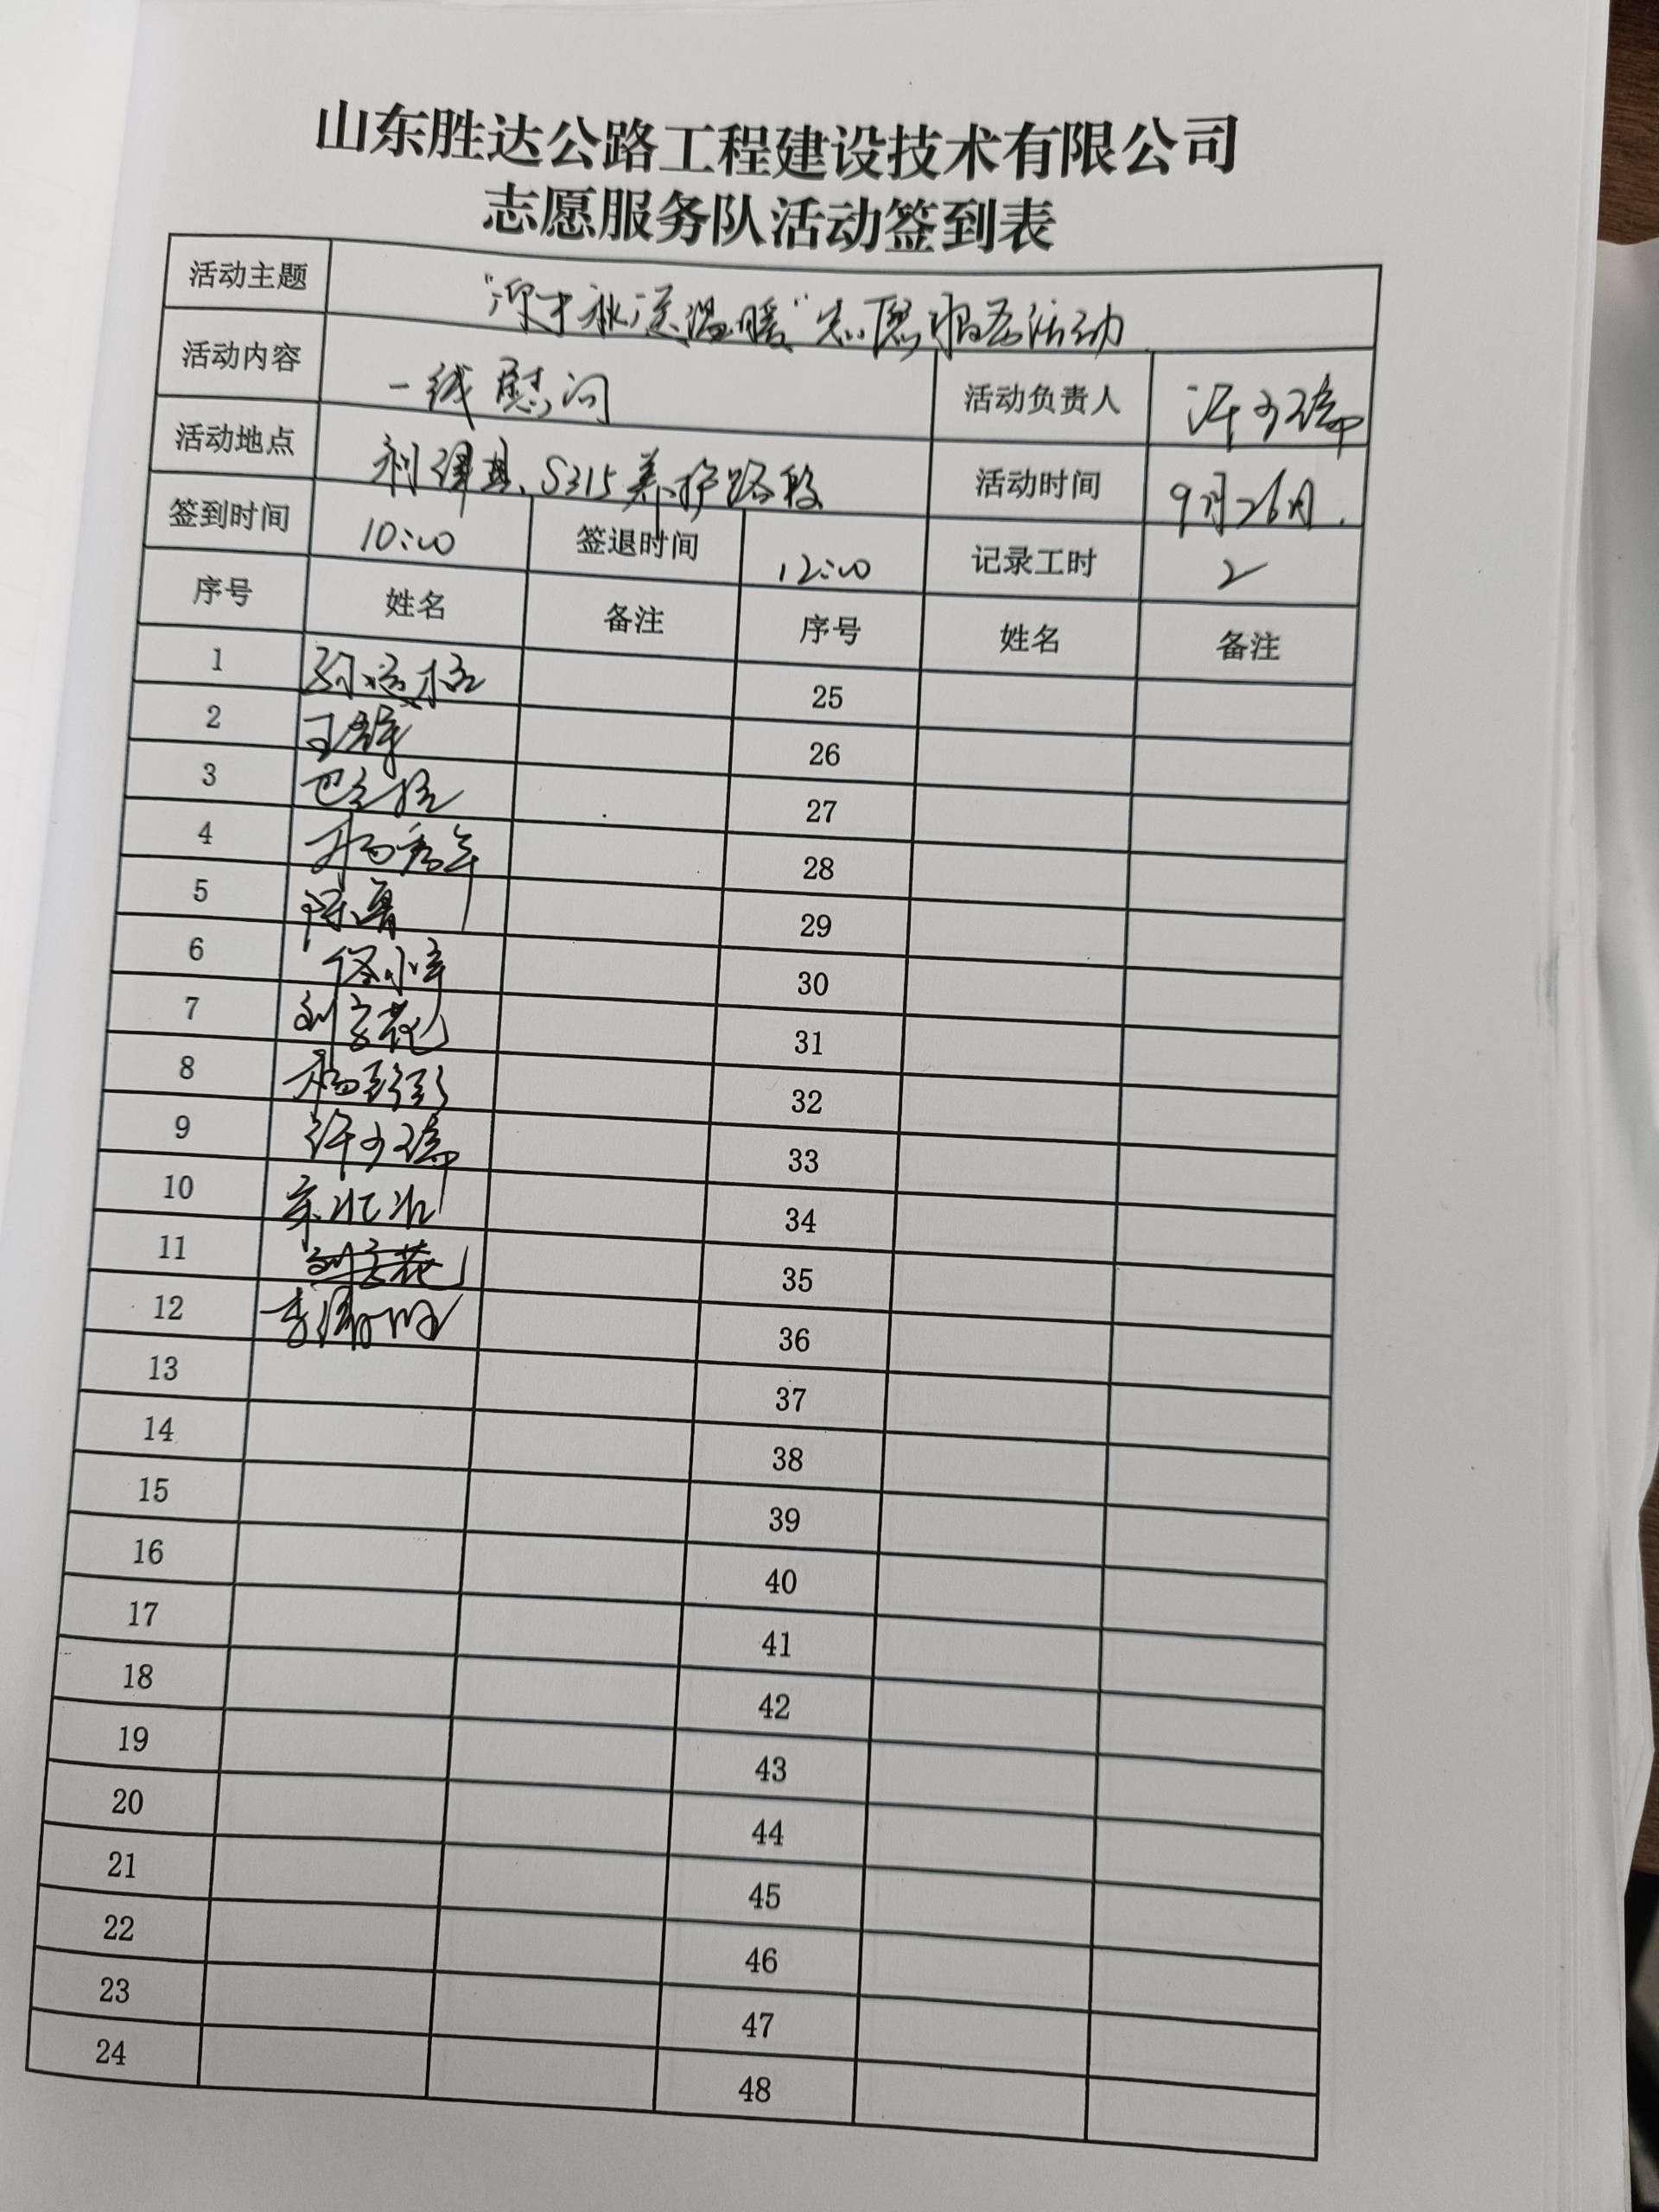 山东胜达公路工程建设技术有限公司
志愿服务队活动签到表
活动主题 "深秋送温暖"志愿服务活动
活动内容 一线慰问 活动负责人 许
活动地点 利津县、S315养护路段 活动时间 9月26日.
签到时间 10:00 签退时间 12:00 记录工时 2
序号 姓名 备注 序号 姓名 备注
1 25
2 王辉 26
3 27
4 杨秀军 28
5 陈勇 29
6 30
7 刘 31
8 杨彩彩 32
9 许 33
10 34
11 35
12 李 36
13 37
14 38
15 39
16 40
17 41
18 42
19 43
20 44
21 45
22 46
23 47
24 48